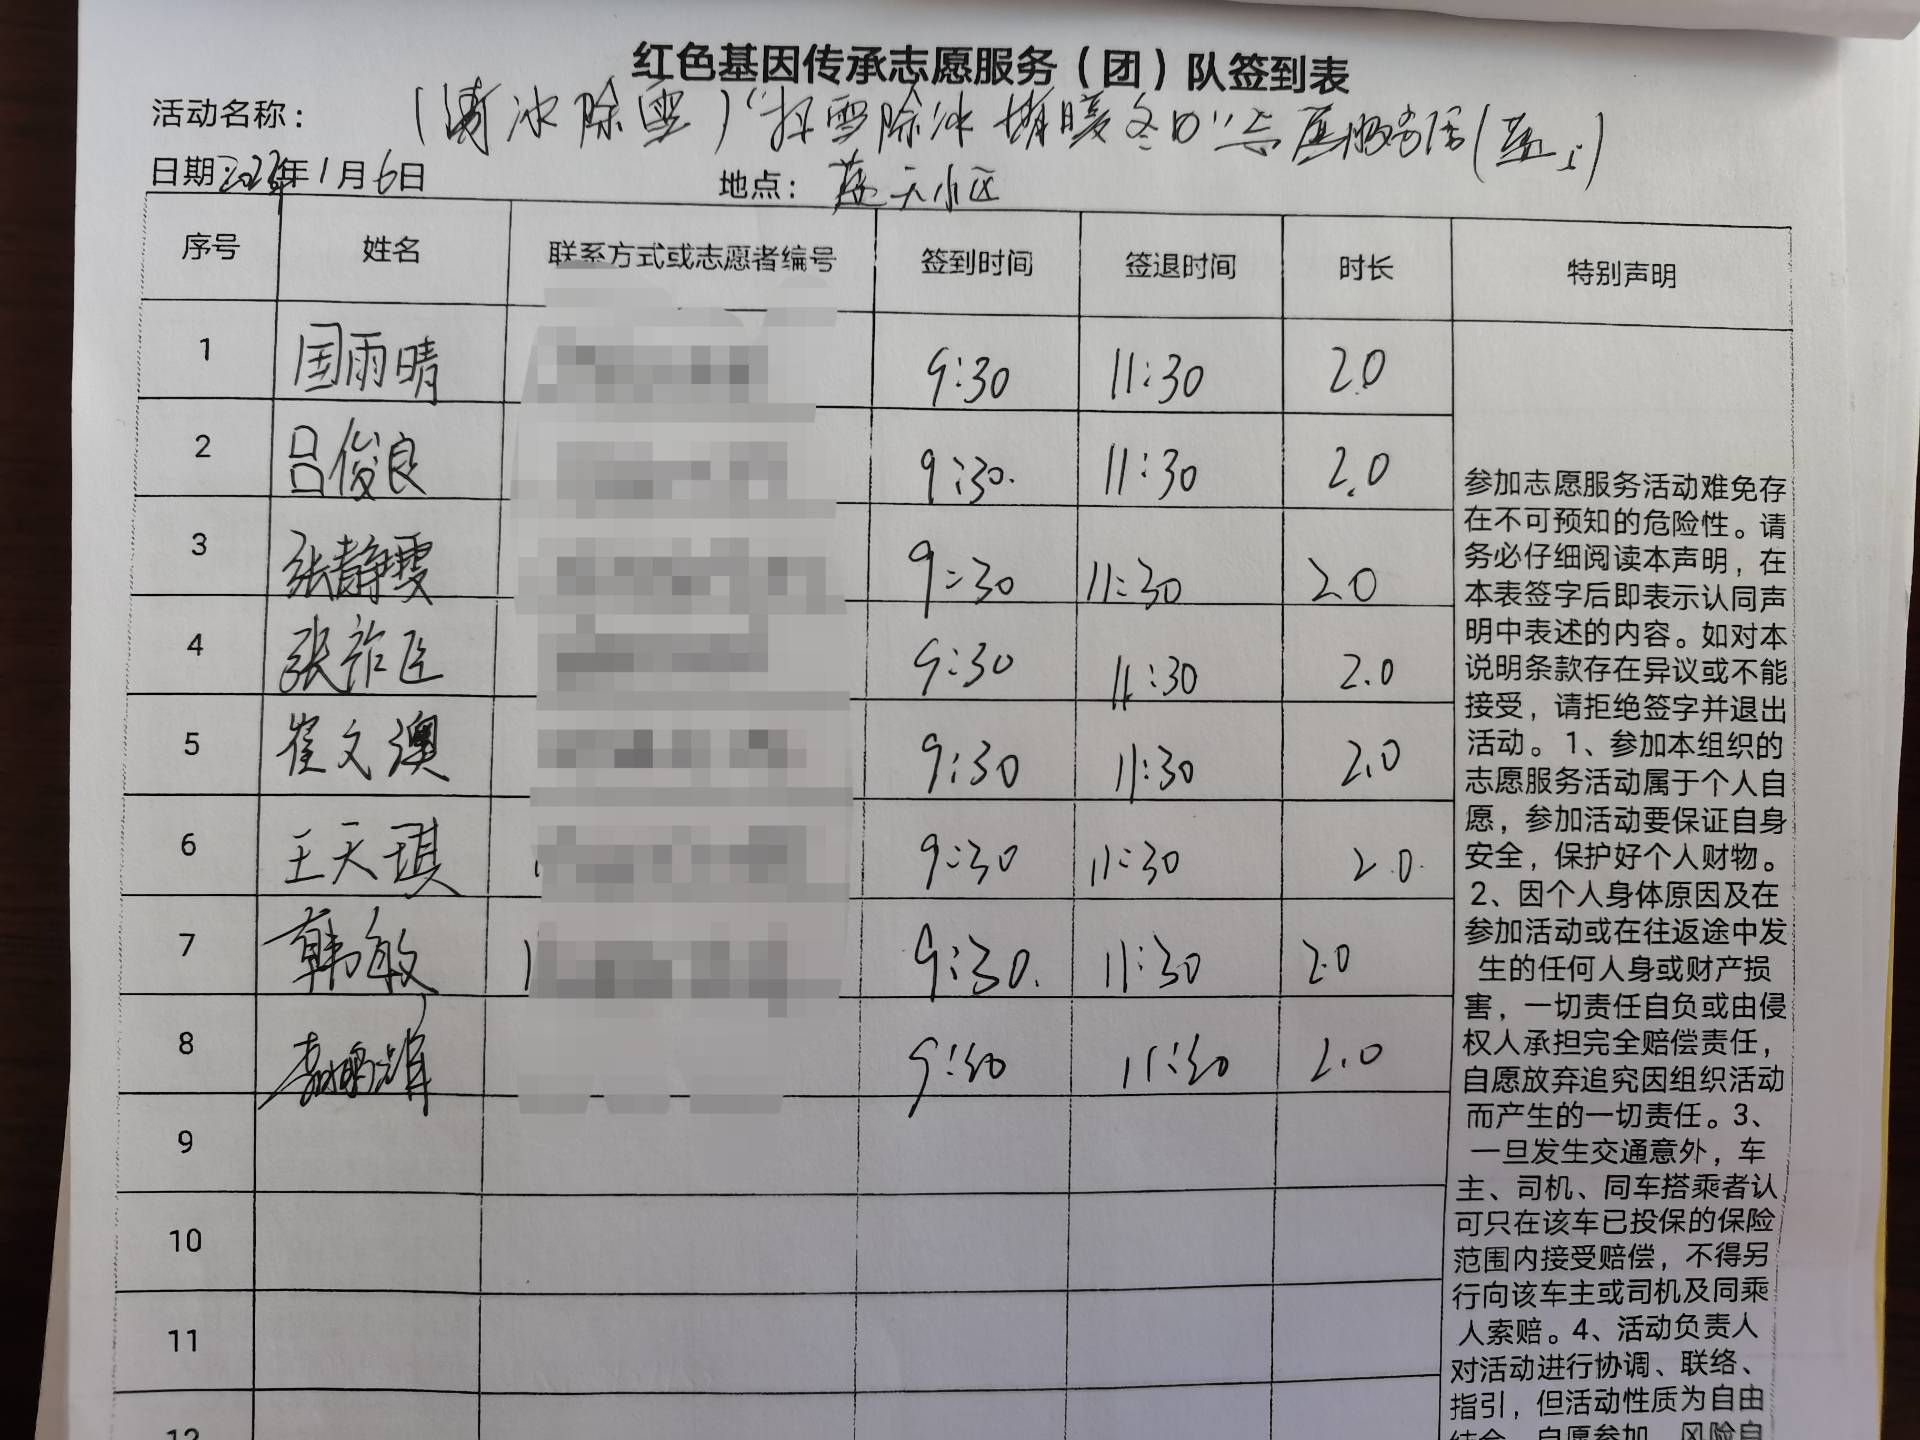 红色基因传承志愿服务（团）队签到表
活动名称： (清冰除雪)“扫雪除冰 情暖冬日”志愿服务活(蓝上)
日期：2023年1月6日 地点：蓝天小区
序号 姓名 联系方式或志愿者编号 签到时间 签退时间 时长 特别声明
1 国雨晴 9:30 11:30 2.0
2 吕俊良 9:30. 11:30 2.0
3 张静雯 9:30 11:30 2.0
4 张 9:30 11:30 2.0
5 崔文澳 9:30 11:30 2.0
6 王天琪 9:30 11:30 2.0
7 韩敏 9:30. 11:30 2.0
8 李鹏 9:30 11:30 2.0
9
10
11
12
参加志愿服务活动难免存
在不可预知的危险性。请
务必仔细阅读本声明，在
本表签字后即表示认同声
明中表述的内容。如对本
说明条款存在异议或不能
接受，请拒绝签字并退出
活动。1、参加本组织的
志愿服务活动属于个人自
愿，参加活动要保证自身
安全，保护好个人财物。
2、因个人身体原因及在
参加活动或在往返途中发
生的任何人身或财产损
害，一切责任自负或由侵
权人承担完全赔偿责任，
自愿放弃追究因组织活动
而产生的一切责任。3、
一旦发生交通意外，车
主、司机、同车搭乘者认
可只在该车已投保的保险
范围内接受赔偿，不得另
行向该车主或司机及同乘
人索赔。4、活动负责人
对活动进行协调、联络、
指引，但活动性质为自由
结合、自愿参加、风险自